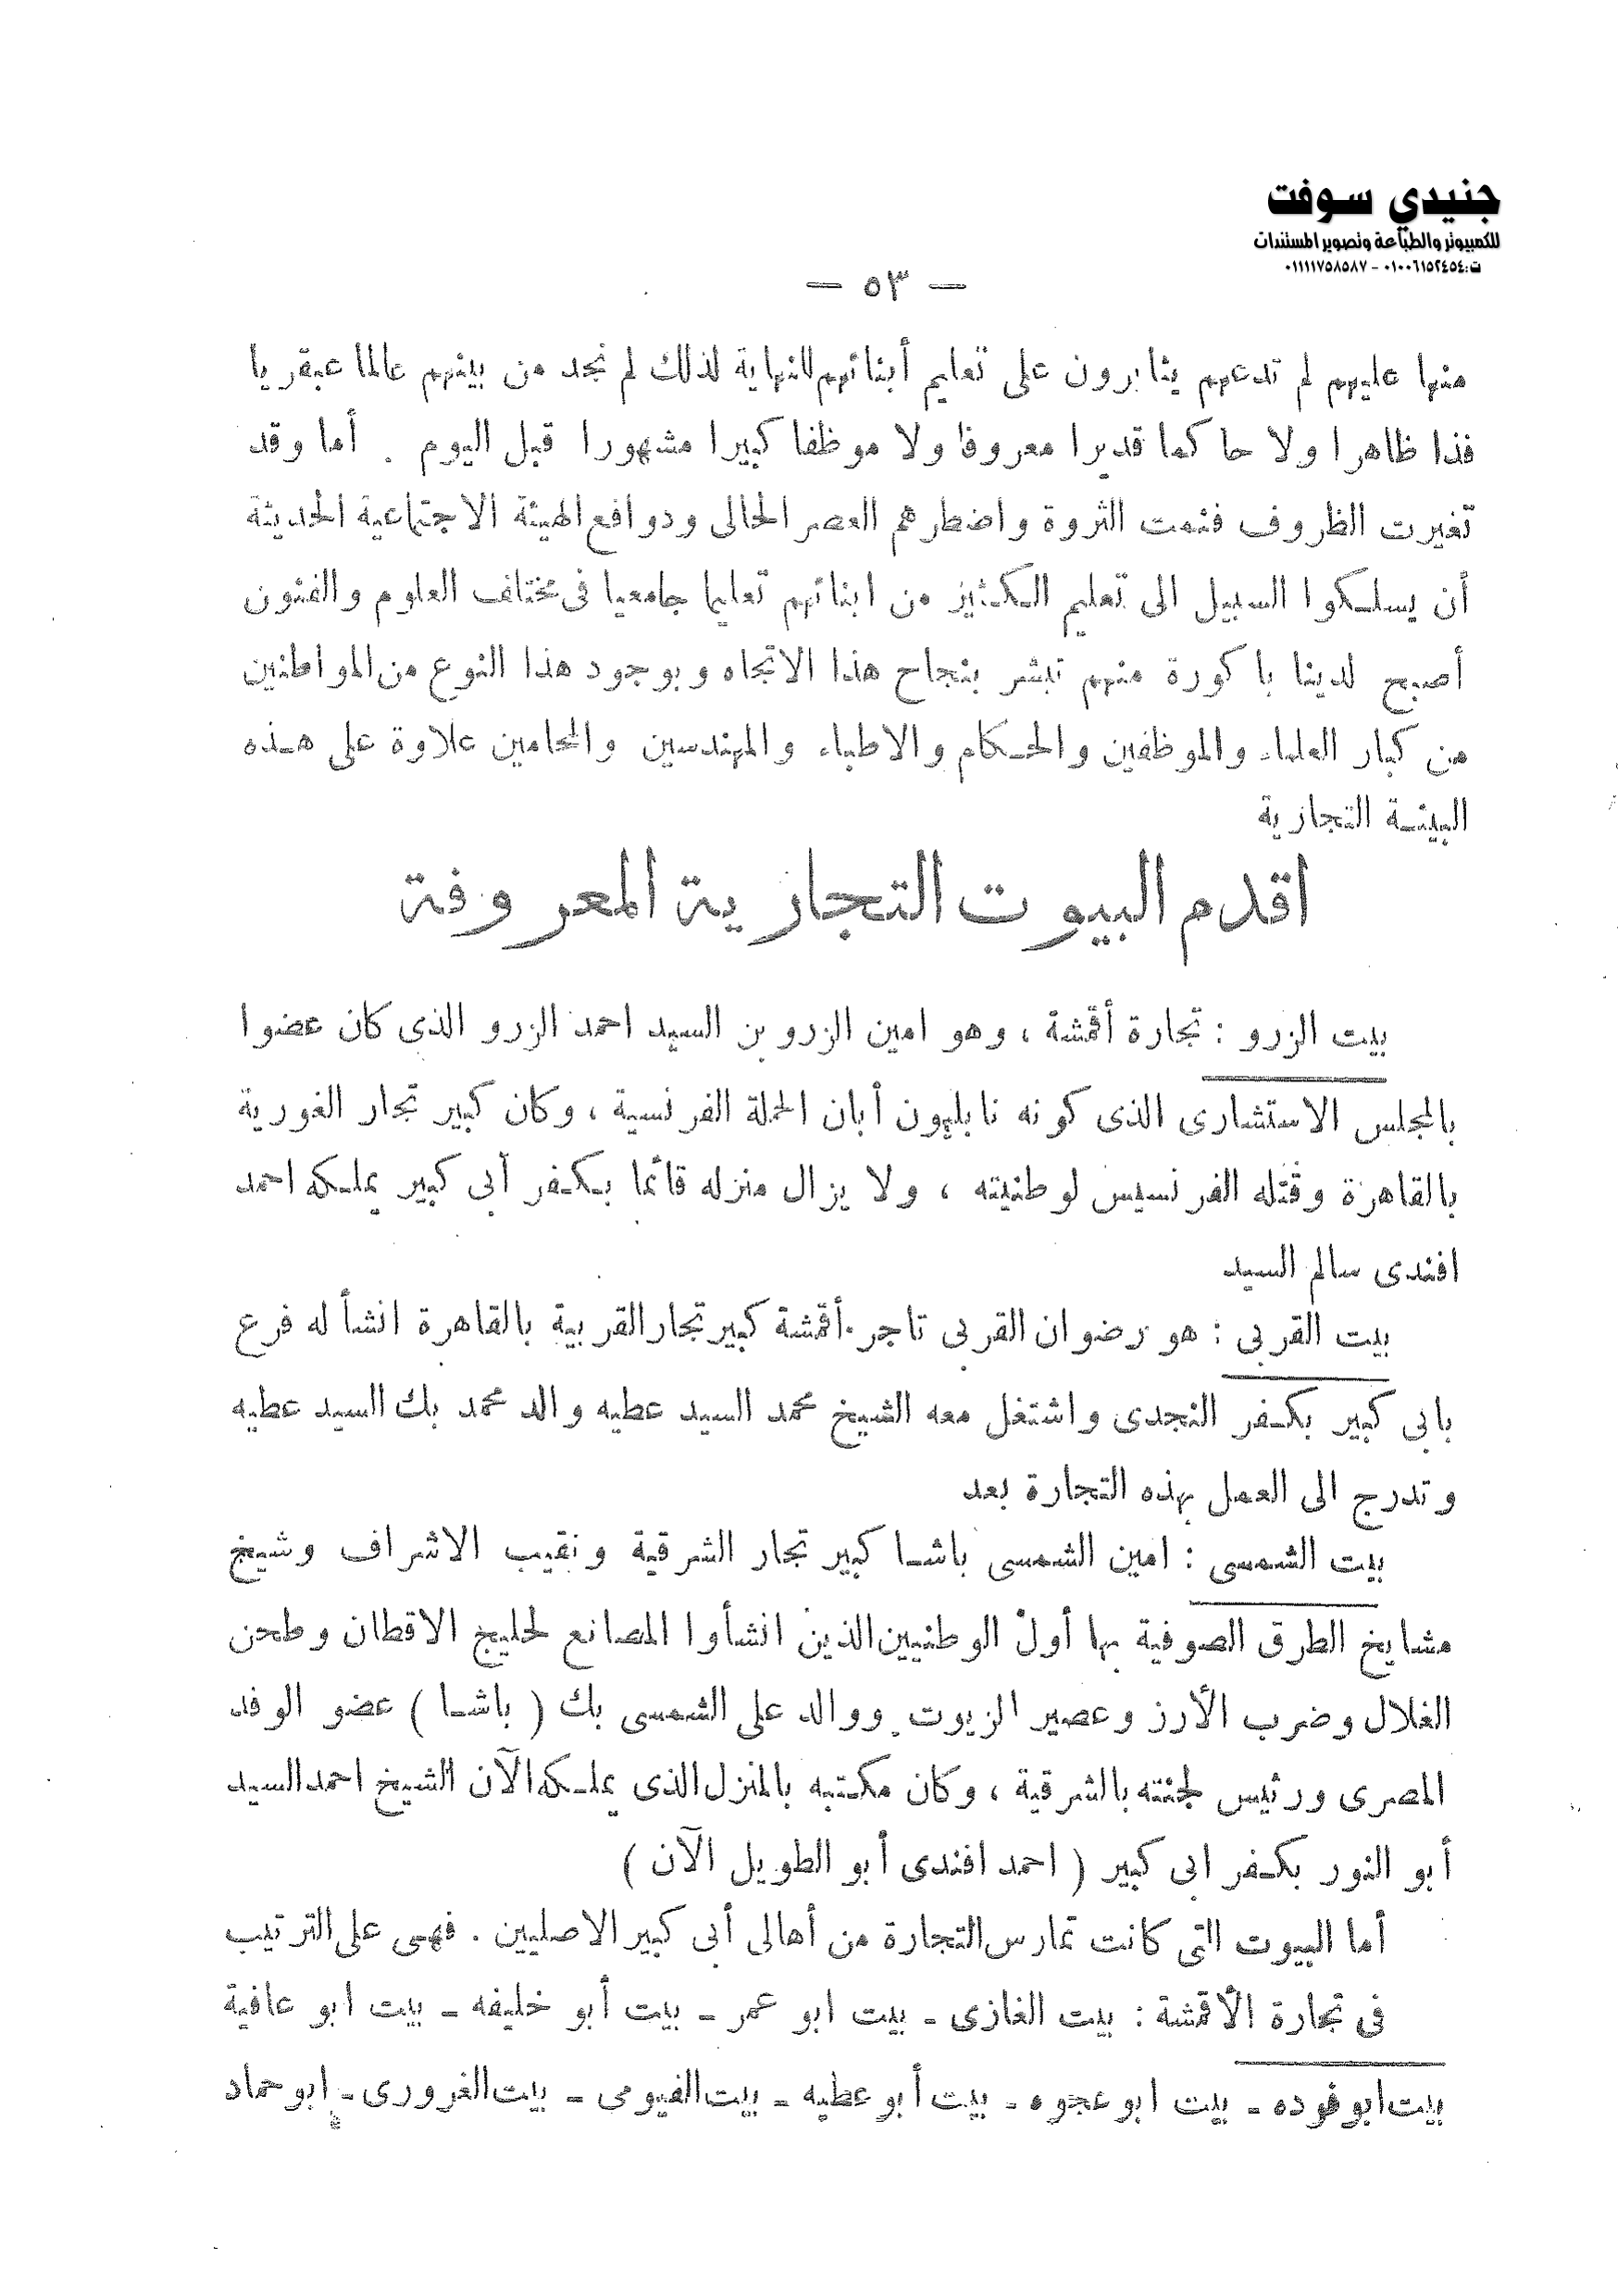 جنيدي سوفت
للكمبيوتر والطباعة وتصوير المستندات
ت: ٠١٠٠٦١٥٢٤٥٤ - ٠١١١١٧٥٨٥٨٧
— ٥٣ —
منها عليهم لم تدعهم يثابرون على تعليم أبنائهم للنهاية لذلك لم نجد من بينهم عالما عبقريا
فذا ظاهرا ولا حاكما قديرا معروفا ولا موظفا كبيرا مشهورا قبل اليوم . أما وقد
تغيرت الظروف فنمت الثروة واضطرهم العصر الحالى ودوافع الهيئة الاجتماعية الحديثة
أن يسلكوا السبيل الى تعليم الكثير من ابنائهم تعليما جامعيا فى مختلف العلوم والفنون
أصبح لدينا باكورة منهم تبشر بنجاح هذا الاتجاه وبوجود هذا النوع من المواطنين
من كبار العلماء والموظفين والحكام والاطباء والمهندسين والمحامين علاوة على هذه
البيئة التجارية
اقدم البيوت التجارية المعروفة
بيت الزرو : تجارة أقمشة ، وهو امين الزرو بن السيد احمد الزرو الذى كان عضوا
بالمجلس الاستشارى الذى كونه نابليون أبان الحملة الفرنسية ، وكان كبير تجار الغورية
بالقاهرة وقتله الفرنسيس لوطنيته ، ولا يزال منزله قائما بكفر أبى كبير يملكه احمد
افندى سالم السيد
بيت القربى : هو رضوان القربى تاجر أقمشة كبير تجار القربية بالقاهرة انشأ له فرع
بابى كبير بكفر النجدى واشتغل معه الشيخ محمد السيد عطيه والد محمد بك السيد عطيه
وتدرج الى العمل بهذه التجارة بعد
بيت الشمسى : امين الشمسى باشا كبير تجار الشرقية ونقيب الاشراف وشيخ
مشايخ الطرق الصوفية بها أول الوطنيين الذين انشأوا المصانع لحليج الاقطان وطحن
الغلال وضرب الأرز وعصير الزيوت ووالد على الشمسى بك ( باشا ) عضو الوفد
المصرى ورئيس لجنته بالشرقية ، وكان مكتبه بالمنزل الذى يملكه الآن الشيخ احمد السيد
أبو النور بكفر ابى كبير ( احمد افندى أبو الطويل الآن )
أما البيوت التى كانت تمارس التجارة من أهالى أبى كبير الاصليين . فهى على الترتيب
فى تجارة الأقمشة : بيت الغازى - بيت ابو عمر - بيت أبو خليفه - بيت ابو عافية
بيت ابو فوده - بيت ابو عجوه - بيت أبو عطيه - بيت الفيومى - بيت الغرورى - ابو حماد